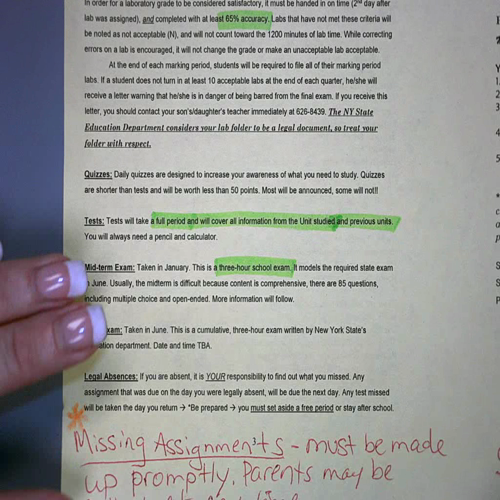 In order for a laboratory grade to be considered satisfactory, it must be handed in on time (2nd day after
lab was assigned), and completed with at least 65% accuracy. Labs that have not met these criteria will
be noted as not acceptable (N), and will not count toward the 1200 minutes of lab time. While correcting
errors on a lab is encouraged, it will not change the grade or make an unacceptable lab acceptable.
At the end of each marking period, students will be required to file all of their marking period
labs. If a student does not turn in at least 10 acceptable labs at the end of each quarter, he/she will
receive a letter warning that he/she is in danger of being barred from the final exam. If you receive this
letter, you should contact your son's/daughter's teacher immediately at 626-8439. The NY State
Education Department considers your lab folder to be a legal document, so treat your
folder with respect.
Quizzes: Daily quizzes are designed to increase your awareness of what you need to study. Quizzes
are shorter than tests and will be worth less than 50 points. Most will be announced, some will not!!
Tests: Tests will take a full period and will cover all information from the Unit studied and previous units.
You will always need a pencil and calculator.
Mid-term Exam: Taken in January. This is a three-hour school exam. It models the required state exam
June. Usually, the midterm is difficult because content is comprehensive, there are 85 questions,
including multiple choice and open-ended. More information will follow.
xam: Taken in June. This is a cumulative, three-hour exam written by New York State's
ation department. Date and time TBA.
Legal Absences: If you are absent, it is YOUR responsibility to find out what you missed. Any
assignment that was due on the day you were legally absent, will be due the next day. Any test missed
will be taken the day you return → *Be prepared → you must set aside a free period or stay after school.
Missing Assignments - must be made
up promptly. Parents may be